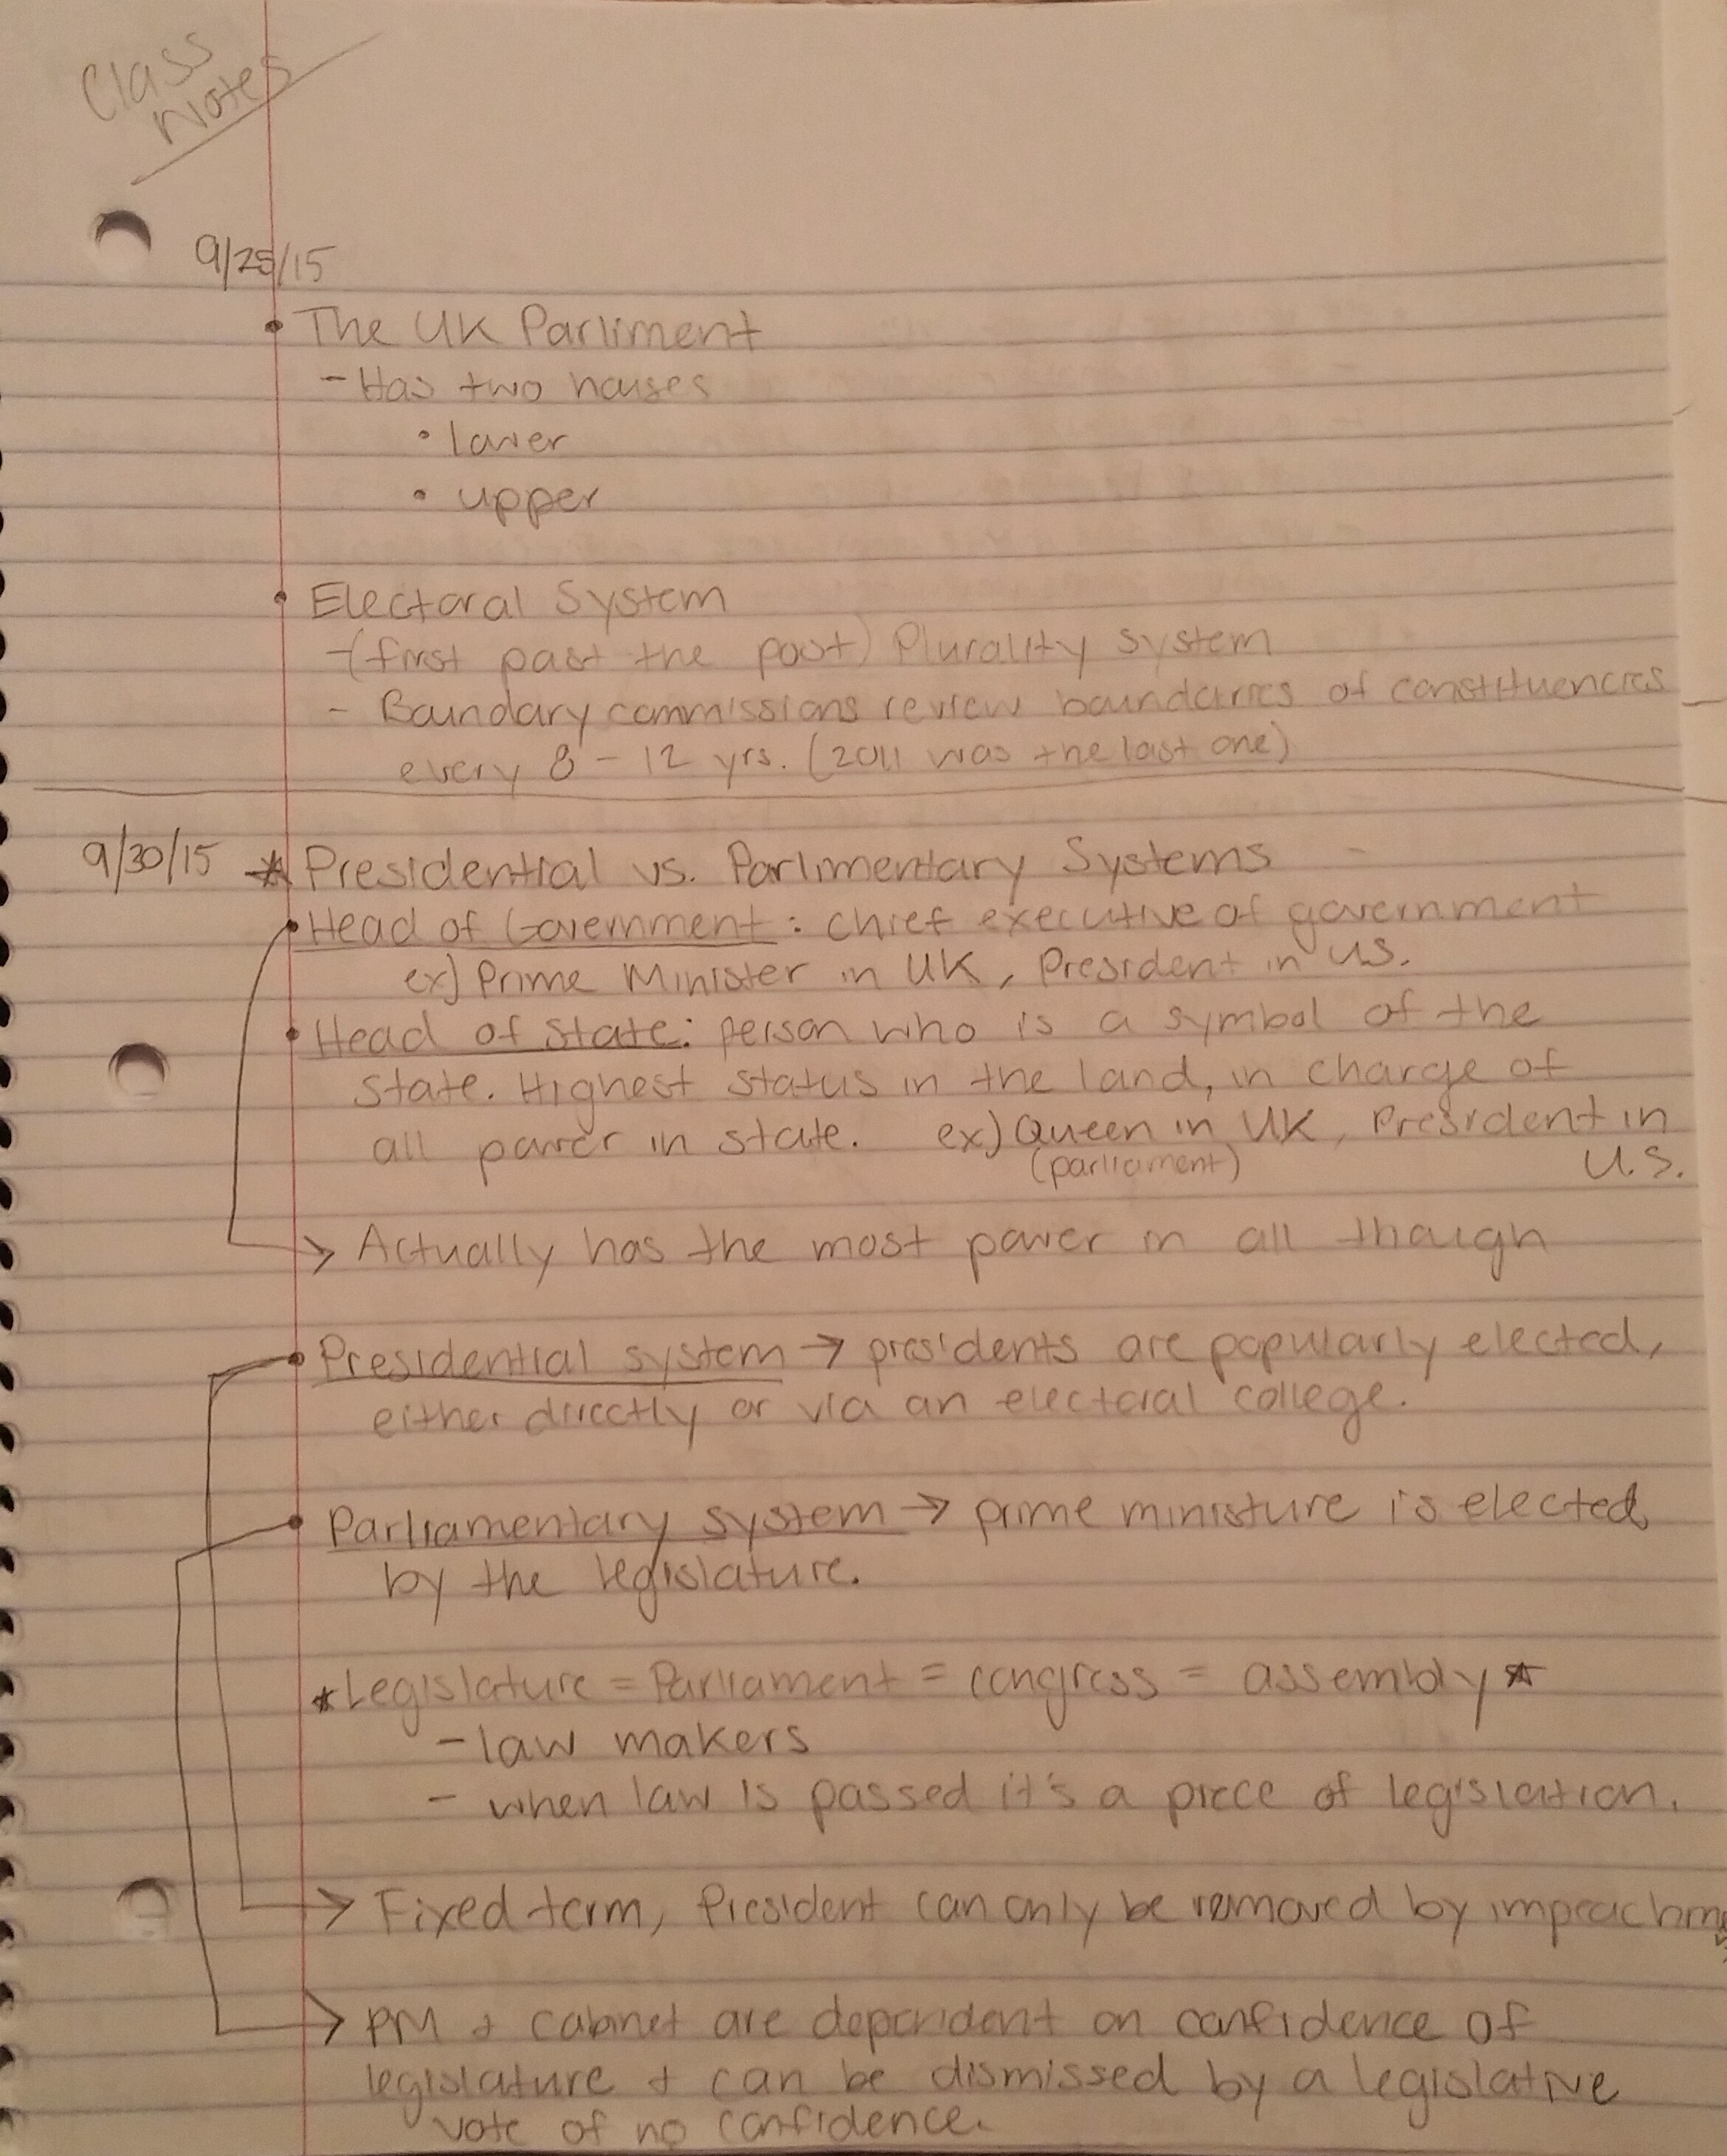 Class
Notes
9/25/15
• The UK Parliment
- Has two houses
• lower
• upper
• Electoral System
- (first past the post) Plurality system
- Boundary commissions review boundaries of constituencies
every 8-12 yrs. (2011 was the last one)
9/30/15 ★ Presidential vs. Parlimentary Systems
• Head of Government: chief executive of government
ex) Prime Minister in UK, President in U.S.
• Head of State: person who is a symbol of the
state. Highest status in the land, in charge of
all power in state. ex) Queen in UK, President in
(parliament) U.S.
→ Actually has the most power in all though
• Presidential system → presidents are popularly elected,
either directly or via an electoral college.
• Parliamentary system → prime ministure is elected
by the legislature.
★ Legislature = Parliament = congress = assembly ★
- law makers
- when law is passed it's a piece of legislation.
→ Fixed term, President can only be removed by impeachm
→ PM + cabinet are dependent on confidence of
legislature + can be dismissed by a legislative
vote of no confidence.